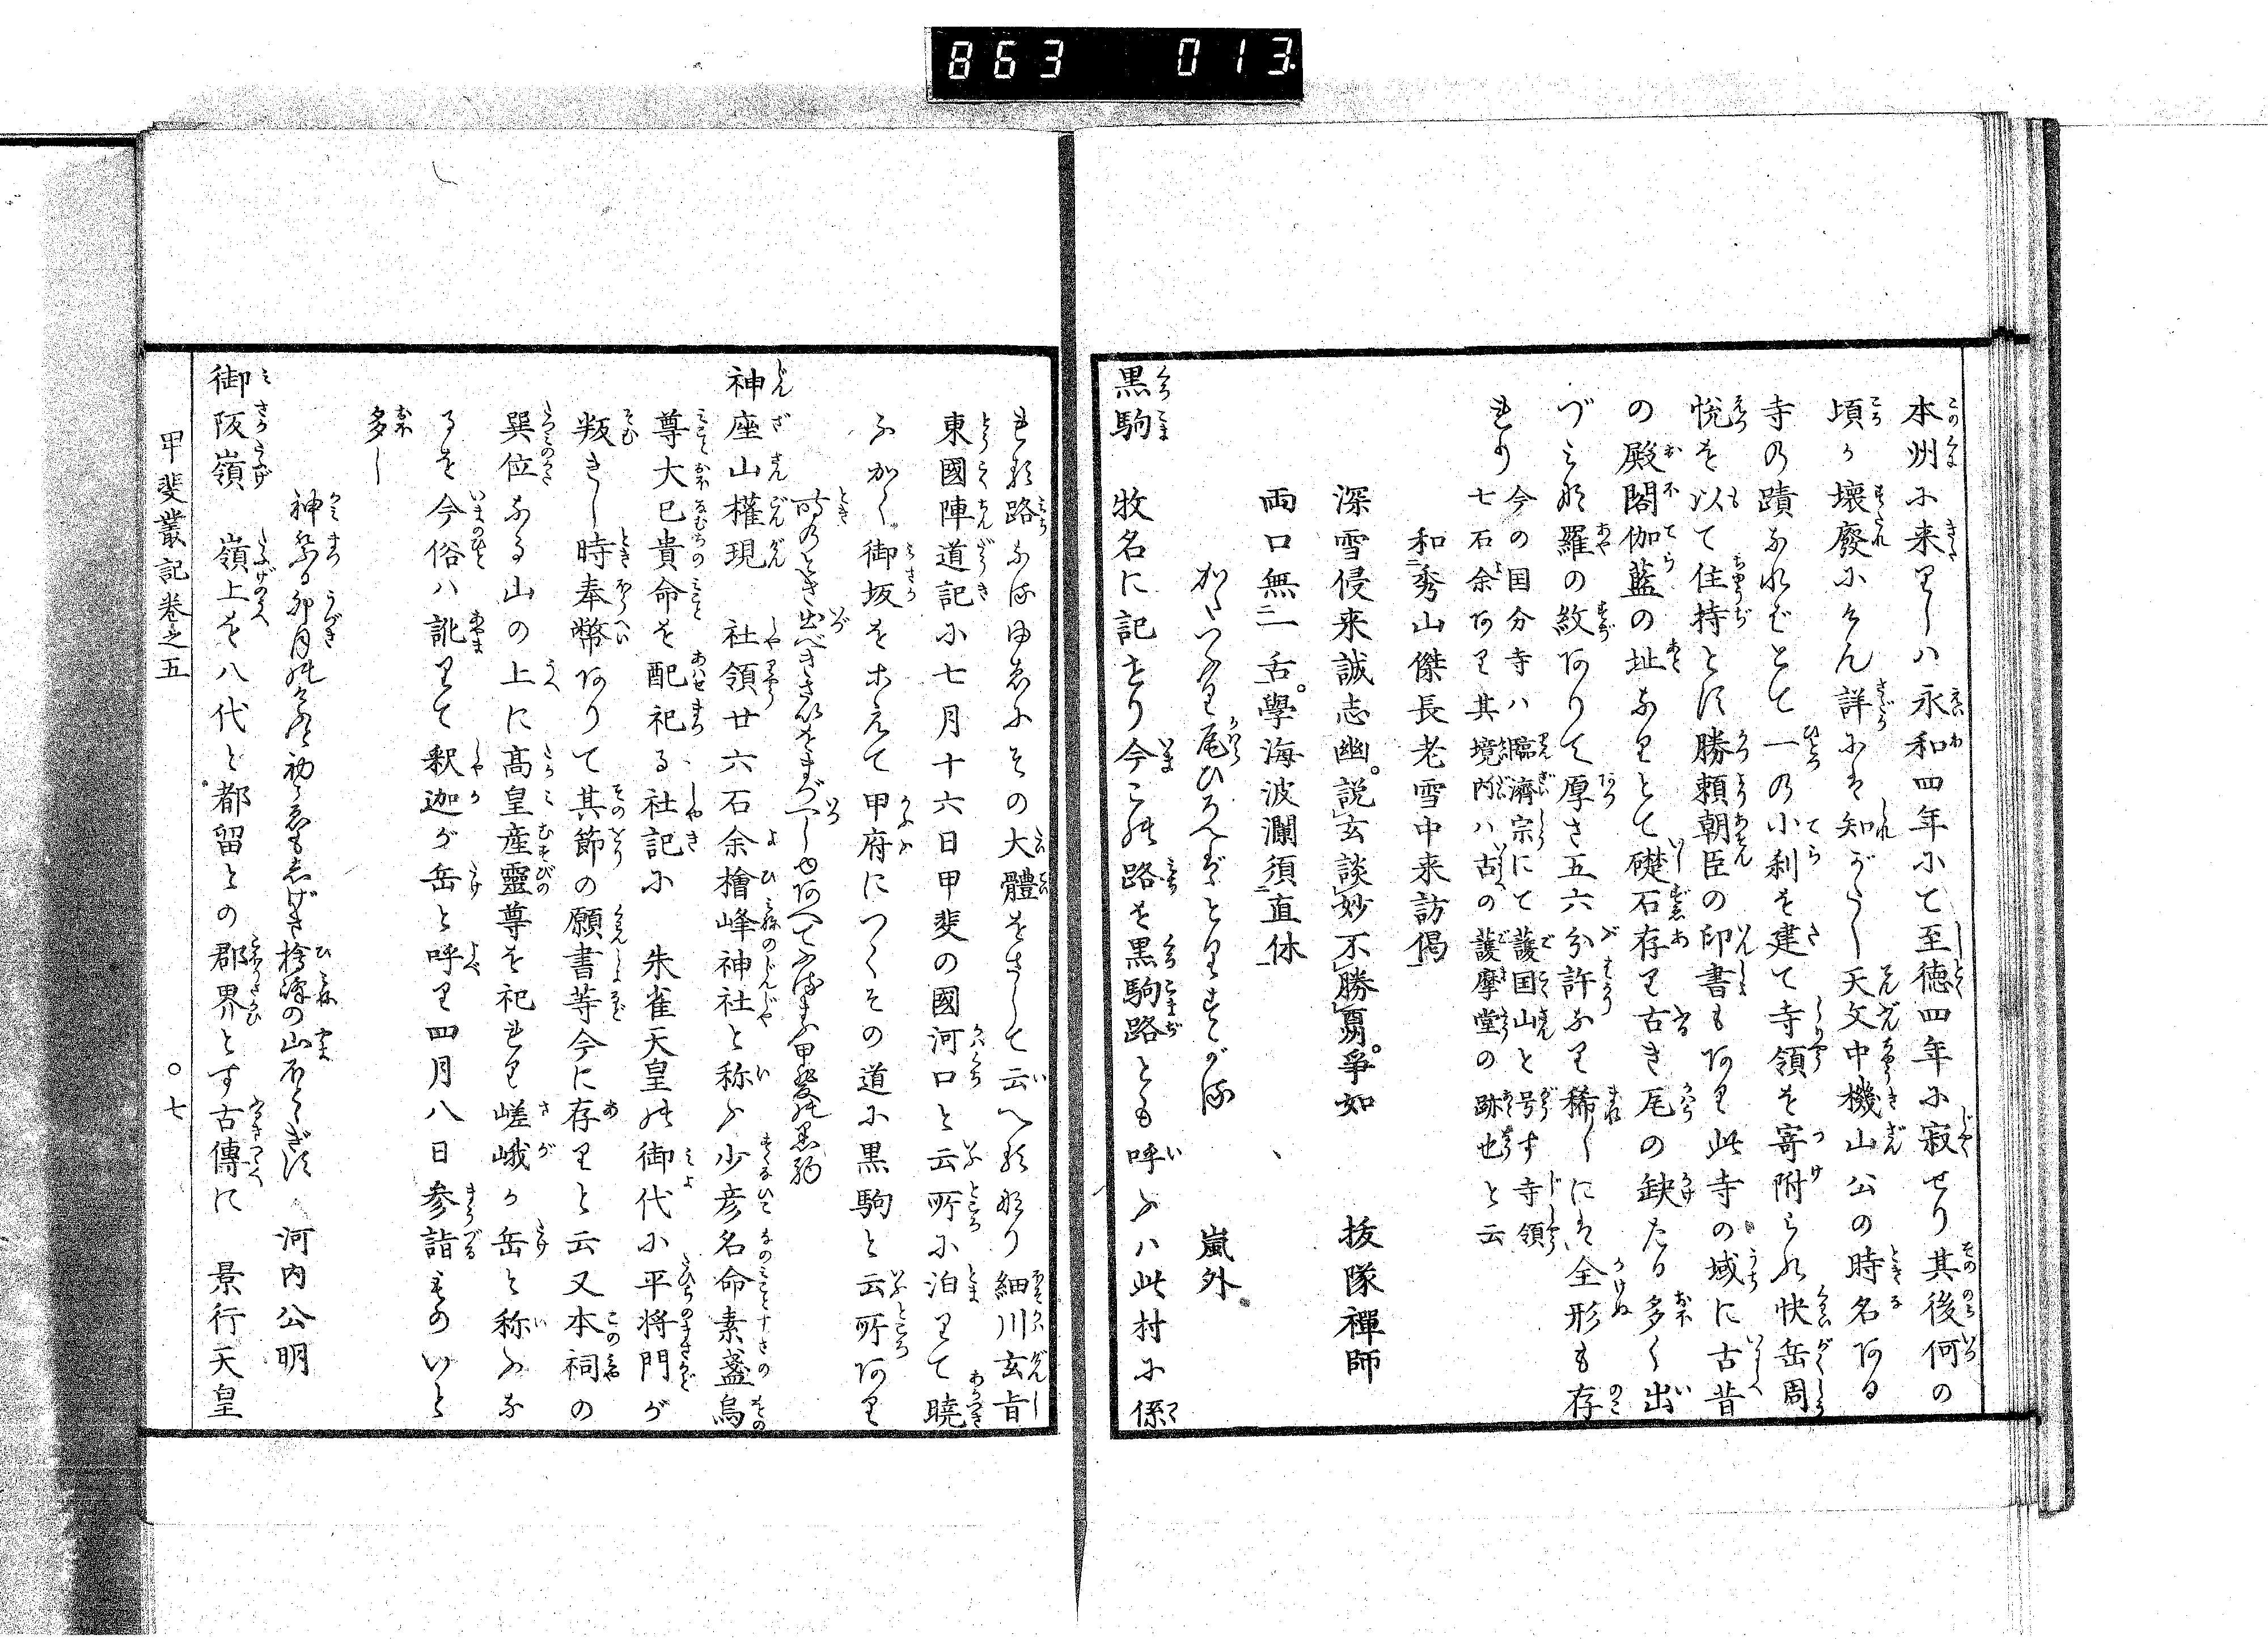 863 013
本州に来りしハ永和四年にて至徳四年に寂せり其後何の
頃か壊廢にけん詳にハ知がたし天文中機山公の時名ある
寺の蹟なれバとて一の小刹を建て寺領を寄附られ快岳周
悦を以て住持とす勝頼朝臣の印書もあり此寺の域に古昔
の殿閣伽藍の址なりとて礎石存り古き尾の缺たる多く出
づミな羅の紋ありて厚さ五六分許なり稀しにハ全形も存
れり
今の国分寺ハ臨濟宗にて護国山と号す寺領
七石余あり其境内ハ古の護摩堂の跡也と云
和秀山傑長老雪中来訪偈
深雪侵来誠志幽説玄談妙不勝 争如 抜隊禪師
両口無一舌學海波瀾須直休
尾ひろへバ 嵐外
黒駒 牧名に記せり今この路を黒駒路とも呼ふハ此村に係
れる路なるゆゑにその大體をさして云へるなり細川玄旨
東國陣道記に七月十六日甲斐の國河口と云所に泊りて曉
ふかく御坂をこえて甲府につくその道に黒駒と云所あり
甲斐の黒駒
神座山權現 社領廿六石余檜峰神社と称ふ少彦名命素盞烏
尊大已貴命を配祀る社記に 朱雀天皇の御代に平将門が
叛きし時奉幣ありて其節の願書等今に存りと云又本祠の
巽位なる山の上に髙皇産靈尊を祀れり嵯峨か岳と称ふな
るを今俗ハ訛りて釈迦が岳と呼り四月八日参詣ものいと
多し
神祭る卯月 檜峰の山ほとゝぎす 河内公明
御阪嶺 嶺上を八代と都留との郡界とす古傳に 景行天皇
甲斐叢記巻之五 ○七